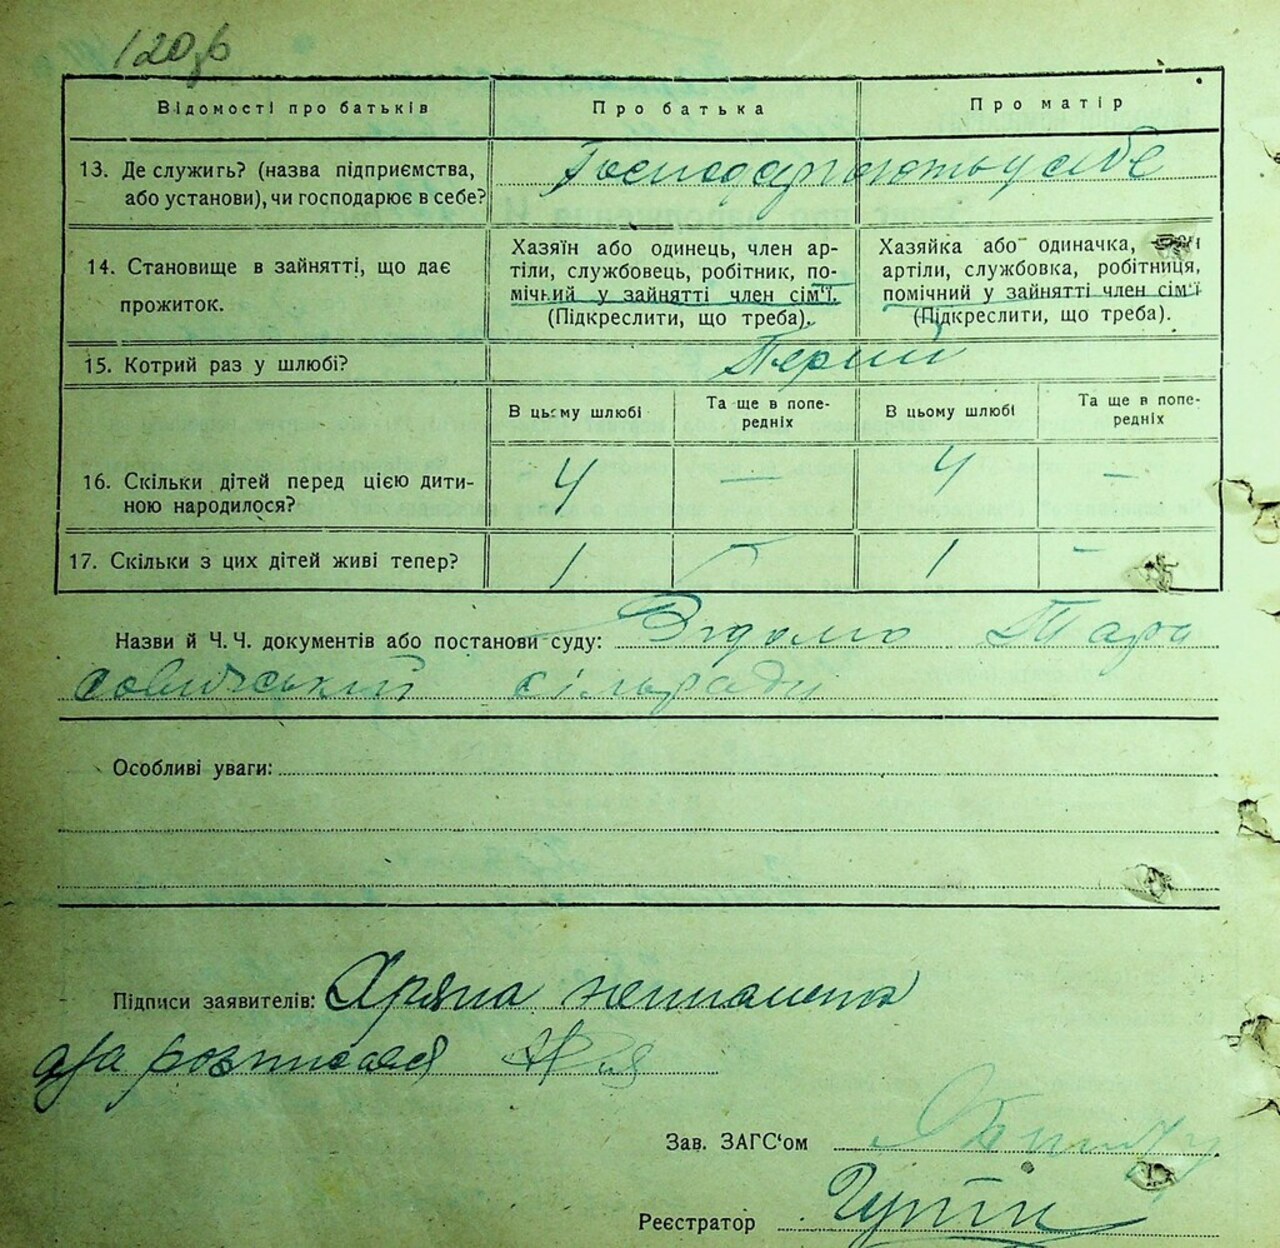 120зв
Відомості про батьків
Про батька
Про матір
13. Де служить? (назва підприємства,
або установи), чи господарює в себе?
Господарюють у себе
14. Становище в зайнятті, що дає
прожиток.
Хазяїн або одинець, член ар-
тіли, службовець, робітник, по-
мічний у зайнятті член сім'ї.
(Підкреслити, що треба).
Хазяйка або одиначка,
артіли, службовка, робітниця,
помічний у зайнятті член сім'ї
(Підкреслити, що треба).
15. Котрий раз у шлюбі?
Перший
В цьому шлюбі
Та ще в попе-
редніх
В цьому шлюбі
Та ще в попе-
редніх
16. Скільки дітей перед цією дити-
ною народилося?
4 — 4 —
17. Скільки з цих дітей живі тепер?
1 — 1 —
Назви й Ч. Ч. документів або постанови суду: Відомо Тара
совичський сільраді
Особливі уваги:
Підписи заявителів: неписьмена
за розписався
Зав. ЗАГС'ом
Реєстратор